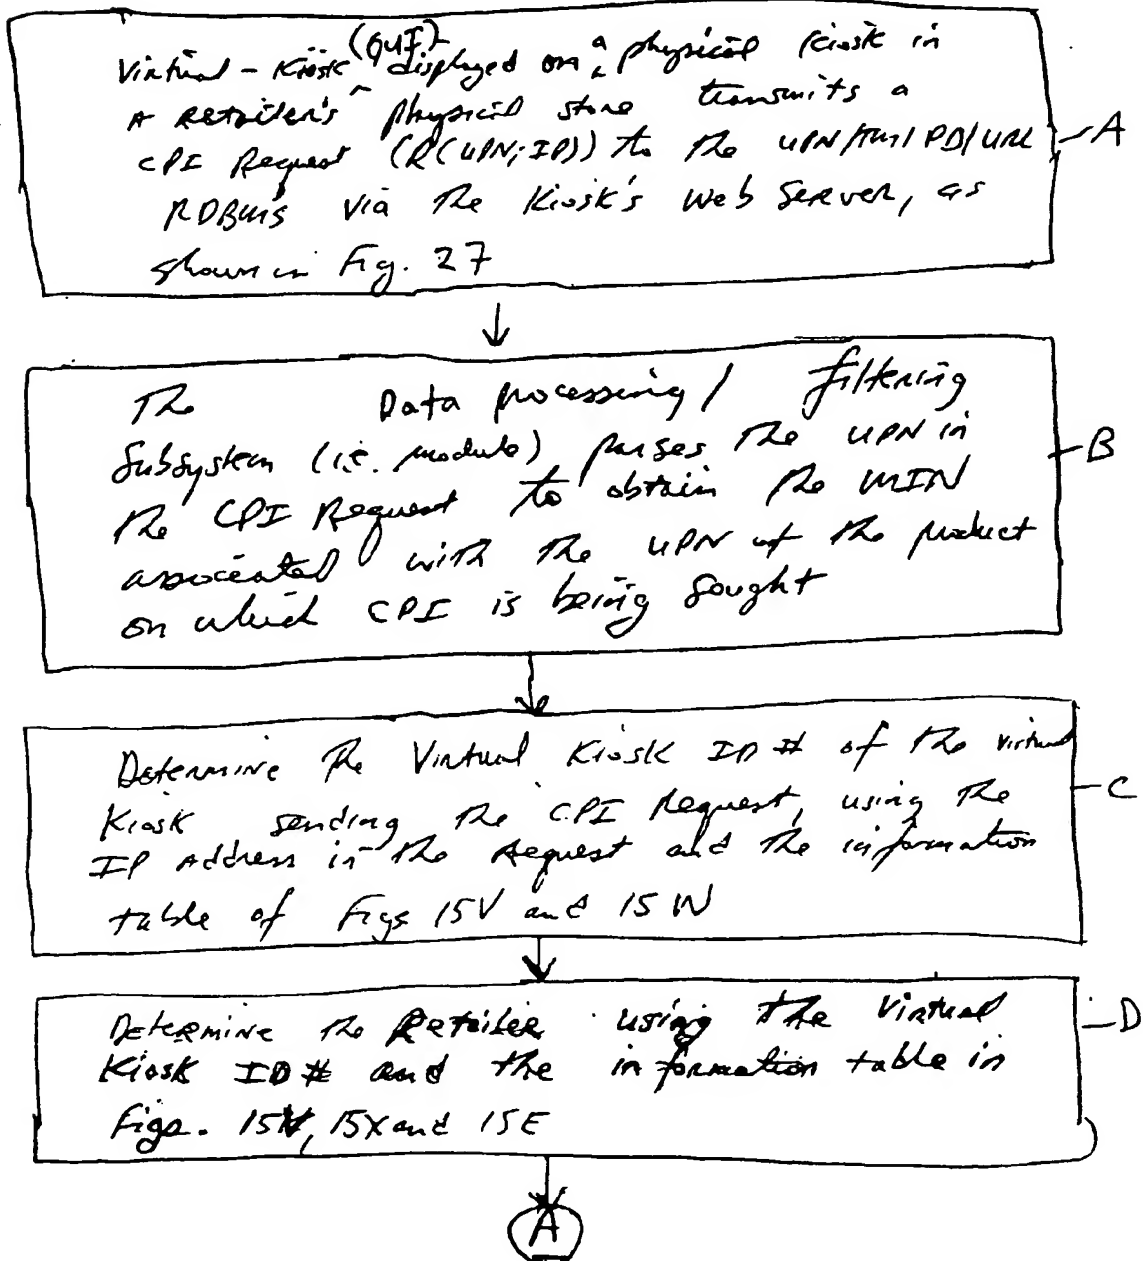 (GUI)
Virtual-Kiosk ^ displayed on ^ a physical Kiosk in
A Retailer's physical store transmits a
CPI Request (R(UPN; IP)) to the UPN/TM/PD/URL
RDBMS via the Kiosk's Web Server, as
shown in Fig. 27
A
The Data processing / filtering
Subsystem (i.e. module) parses the UPN in
the CPI Request to obtain the MIN
associated with the UPN of the product
on which CPI is being sought
B
Determine the Virtual Kiosk ID # of the virtual
Kiosk sending the CPI Request, using the
IP Address in the Request and the information
table of Figs 15V and 15W
C
Determine the Retailer using the Virtual
Kiosk ID # and the information table in
Figs. 15X and 15E
D
A